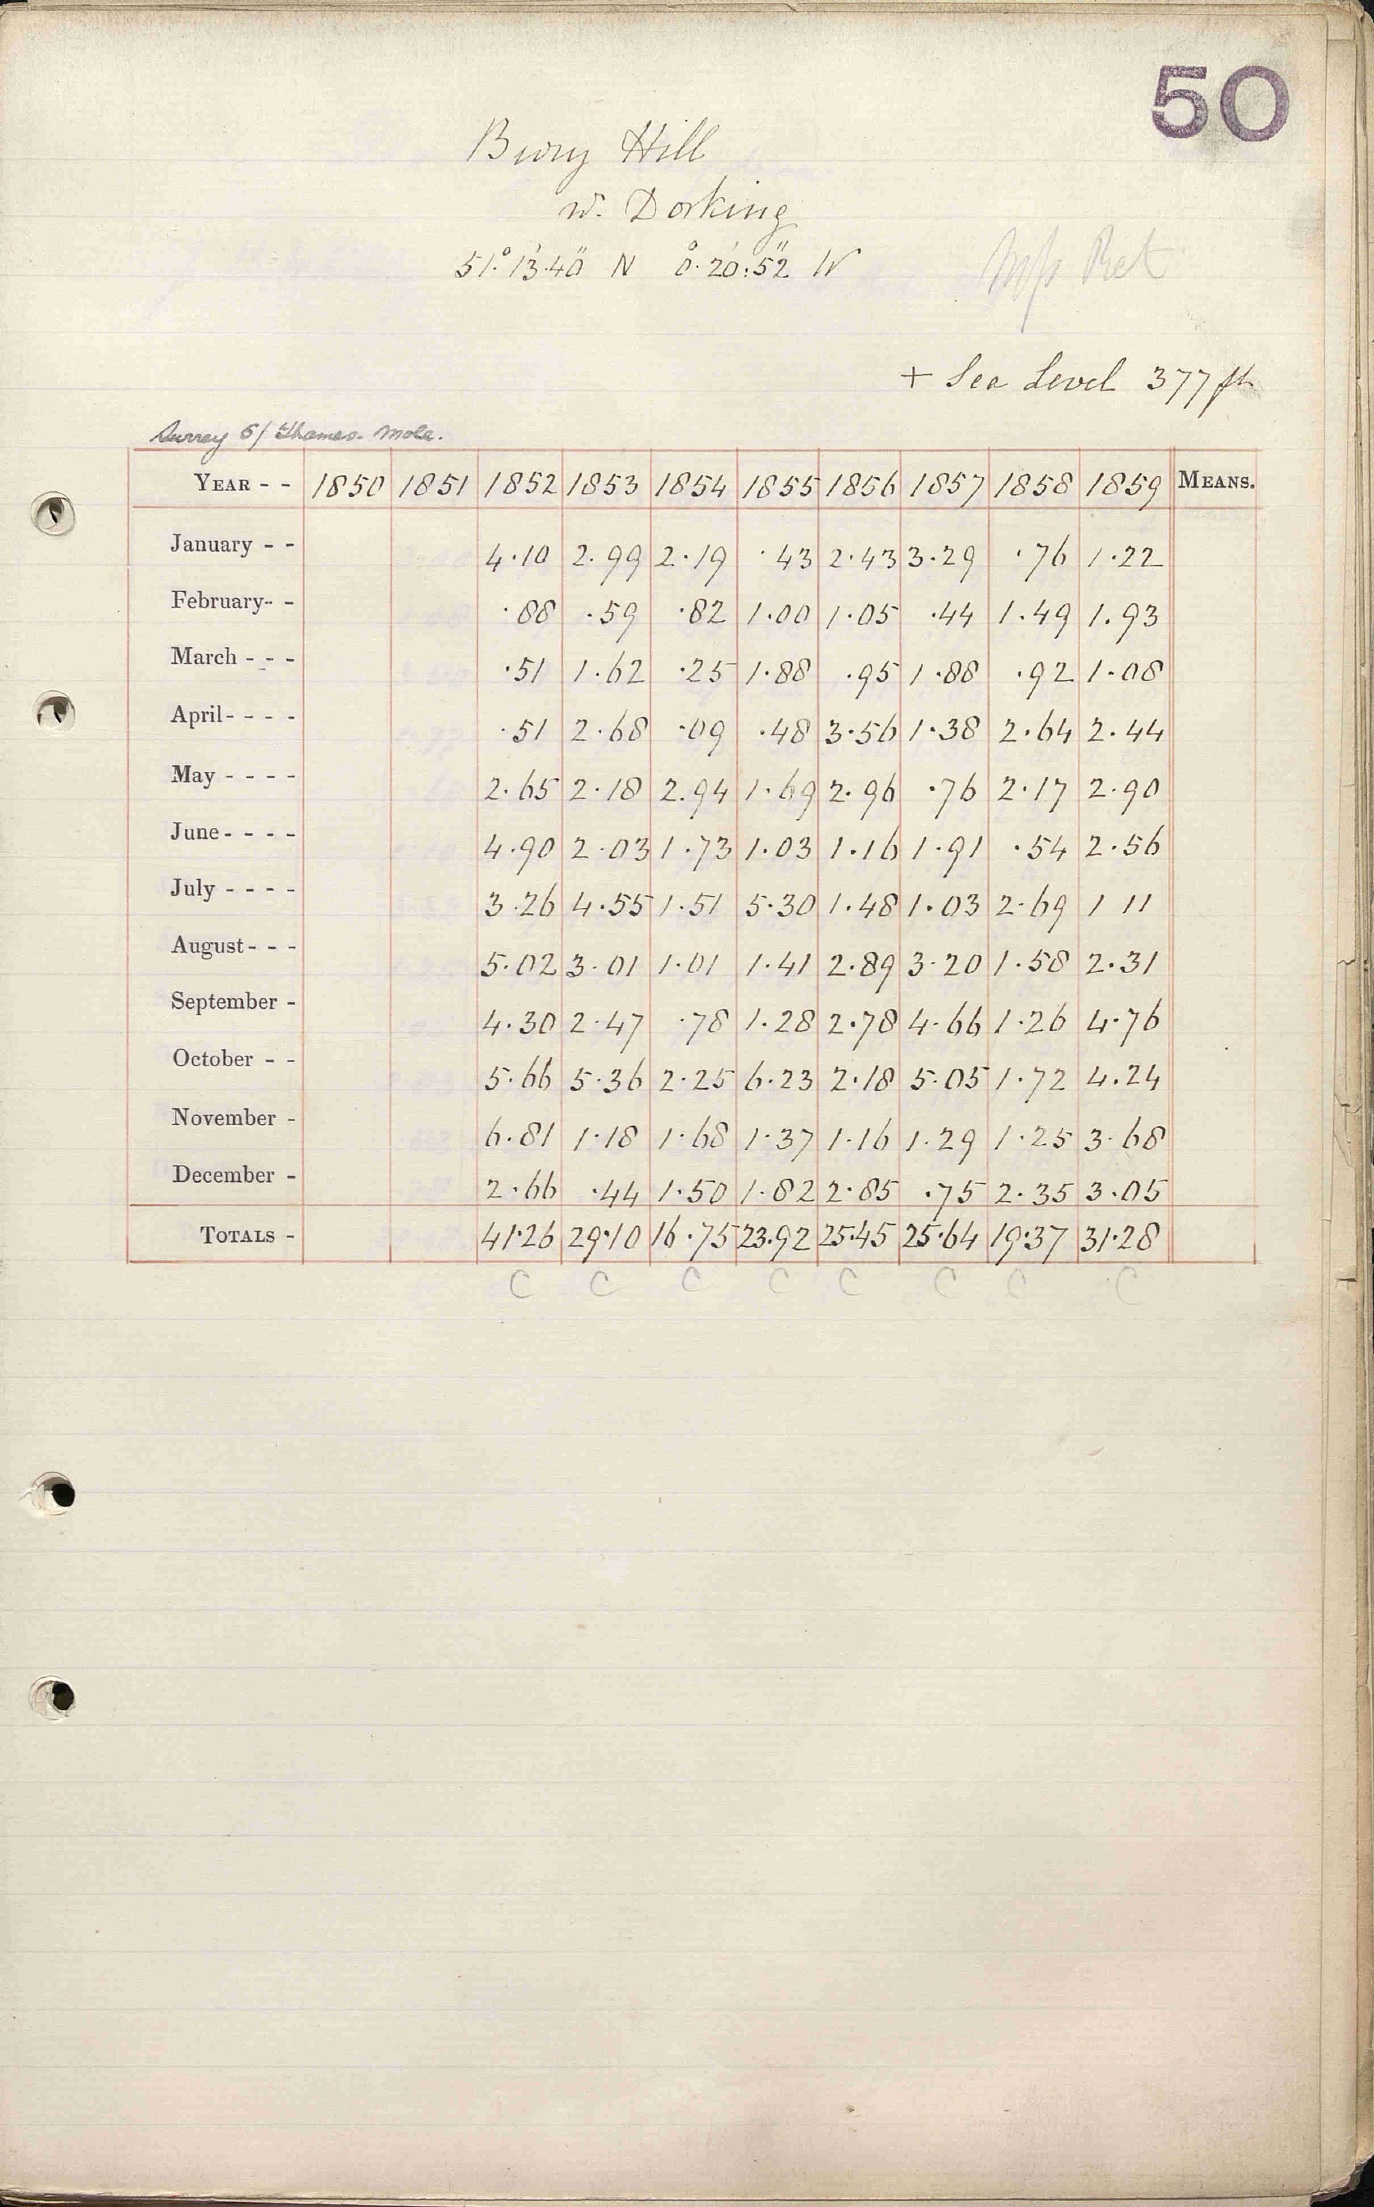 50
Bury Hill
nr. Dorking
51°.13'.40" N 0°.20'.52" W
+ Sea Level 377 ft
Surrey 5/ Thames-Mole.
YEAR - - 1850 1851 1852 1853 1854 1855 1856 1857 1858 1859 MEANS.
January - - 4.10 2.99 2.19 .43 2.43 3.29 .76 1.22
February - - .88 .59 .82 1.00 1.05 .44 1.49 1.93
March - - - .51 1.62 .25 1.88 .95 1.88 .92 1.08
April - - - - .51 2.68 .09 .48 3.56 1.38 2.64 2.44
May - - - - 2.65 2.18 2.94 1.69 2.96 .76 2.17 2.90
June - - - - 4.90 2.03 1.73 1.03 1.16 1.91 .54 2.56
July - - - - 3.26 4.55 1.51 5.30 1.48 1.03 2.69 1 11
August - - - 5.02 3.01 1.01 1.41 2.89 3.20 1.58 2.31
September - 4.30 2.47 .78 1.28 2.78 4.66 1.26 4.76
October - - 5.66 5.36 2.25 6.23 2.18 5.05 1.72 4.24
November - 6.81 1.18 1.68 1.37 1.16 1.29 1.25 3.68
December - 2.66 .44 1.50 1.82 2.85 .75 2.35 3.05
TOTALS - 41.26 29.10 16.75 23.92 25.45 25.64 19.37 31.28
C C C C C C C C